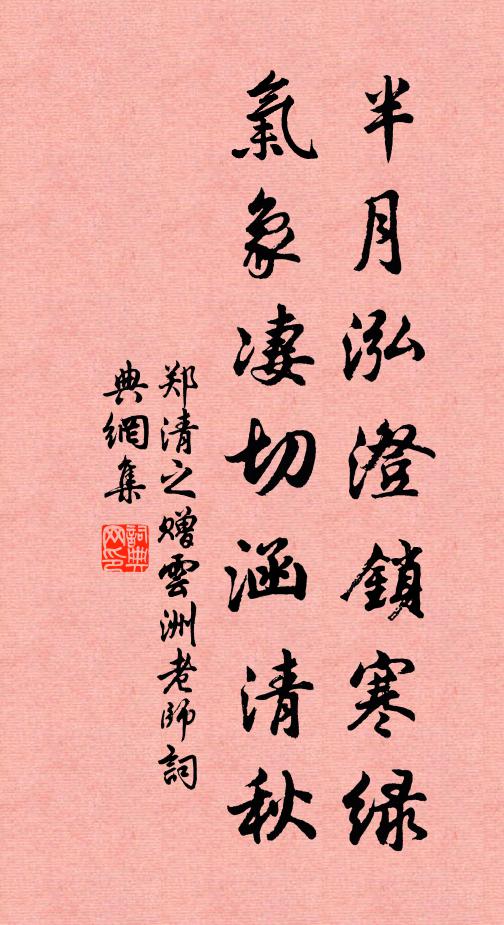 半月泓澄鎖寒绿
氣象凄切涵清秋
郑清之赠雲洲老师詞
典網集
詞典
网印